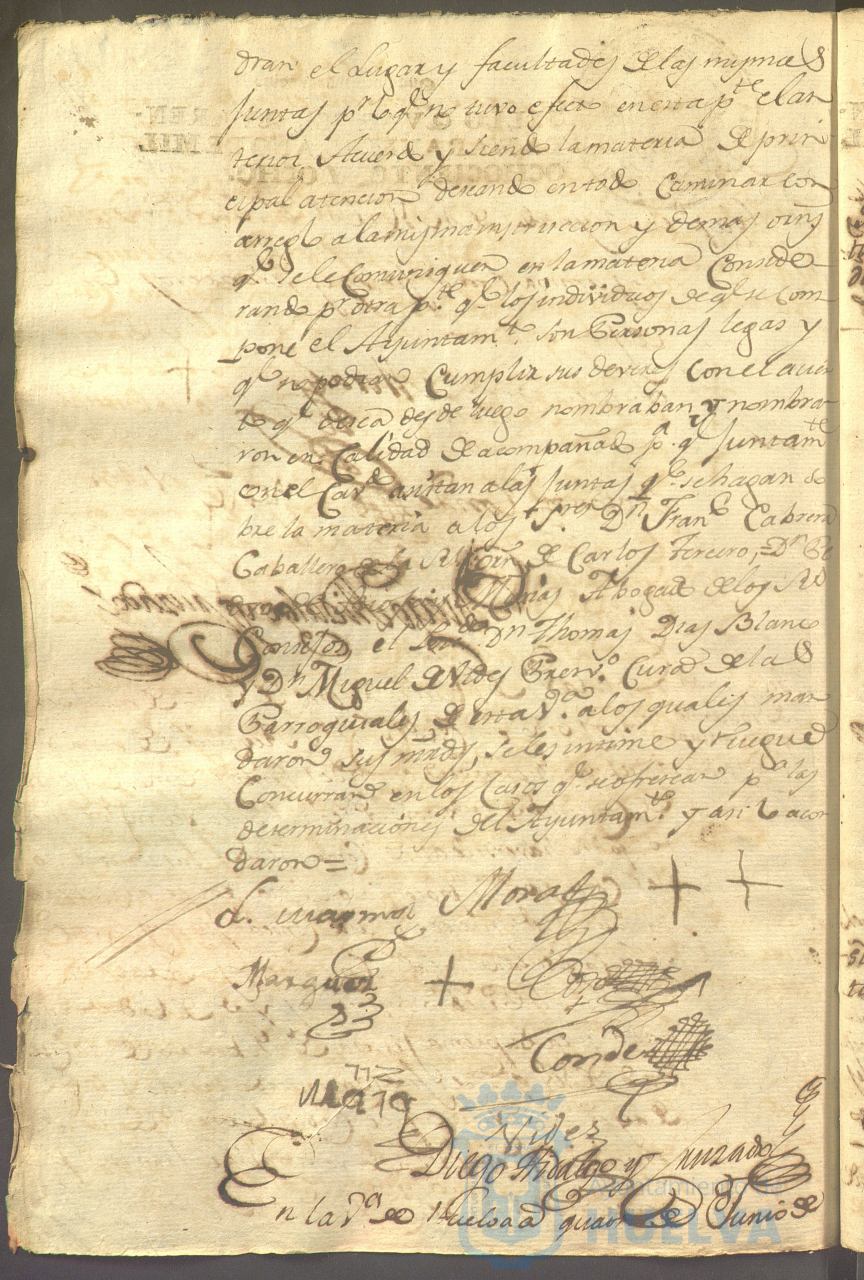 dran el Lugar y facultades de las mismas
Juntas pr lo qe no tuvo efecto en esta pte el an
terior Acuerdo y siendo la materia de prin
cipal atencion deseando en todo caminar con
arreglo a la misma instruccion y demas orns
qe se le Comuniquen en la materia Conside
rando pr otra pte qe los individuos de qe se com
pone el Ayuntamto son Personas legas y
qe no podran Cumplir sus deveres con el acier
to qe desea desde luego nombraban y nombra
ron en Calidad de acompañados pa qe Juntamte
con el Cavdo asistan a las Juntas qe se hagan so
bre la materia a los Sres Dn Franco Cabrera
Caballero de la Rl Orn de Carlos Tercero, = Dn
Abogado de los Rs
Consejos, el Sor Dn Thomas Dias Blanco
y Dn Miguel de Vides Presvro Curas de las
Parroquiales de esta Va a los quales man
daron sus mrdes, se les intime y ruegue
Concurran en los Casos qe se ofrescan pa las
determinaciones del Ayuntamto y asi lo acor
daron =
Morales + +
Marquez +
Conde
Diego Hidalgo y Cruzado
En la Va de Huelva a quatro de Junio de
Ayuntamiento de
HUELVA